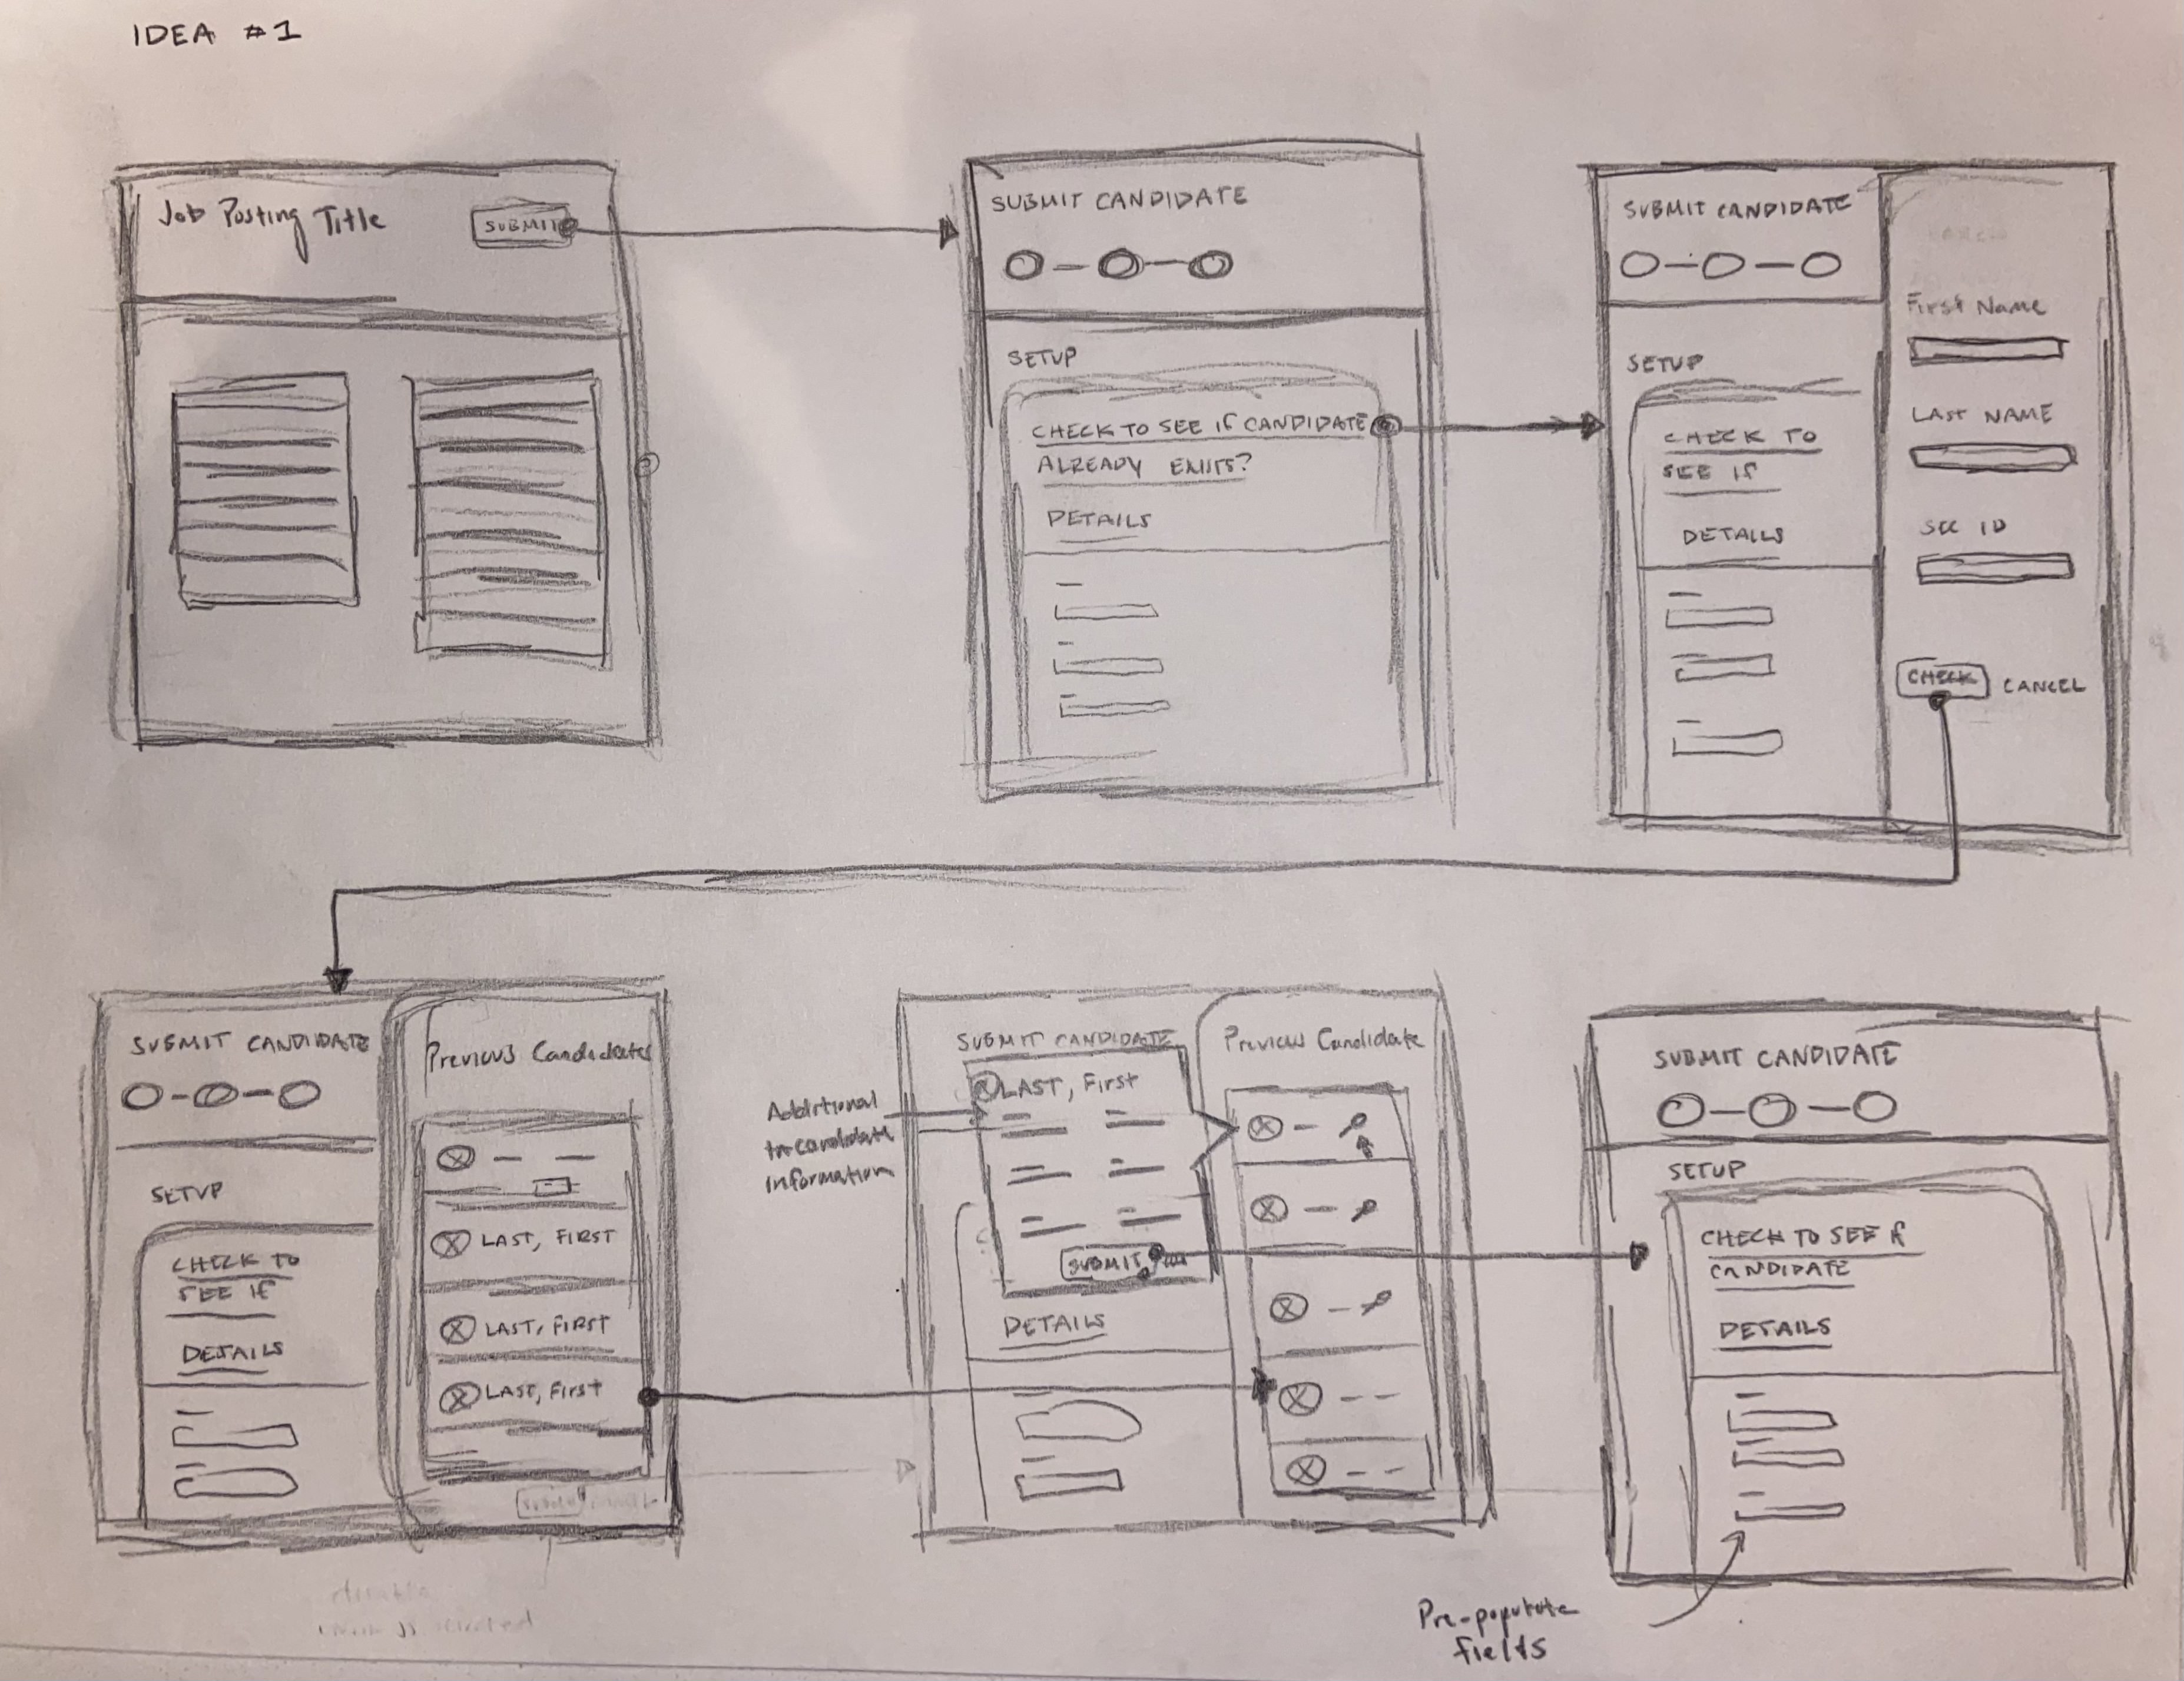 IDEA #1
Job Posting Title
SUBMIT
SUBMIT CANDIDATE
SETUP
CHECK TO SEE IF CANDIDATE
ALREADY EXISTS?
DETAILS
SUBMIT CANDIDATE
SETUP
CHECK TO
SEE IF
DETAILS
First Name
LAST NAME
SEC ID
CHECK
CANCEL
SUBMIT CANDIDATE
SETUP
CHECK TO
SEE IF
DETAILS
Previous Candidates
LAST, FIRST
LAST, FIRST
LAST, First
Additional
candidate
information
SUBMIT CANDIDATE
LAST, First
SUBMIT
DETAILS
Previous Candidate
SUBMIT CANDIDATE
SETUP
CHECK TO SEE IF
CANDIDATE
DETAILS
Pre-populate
fields